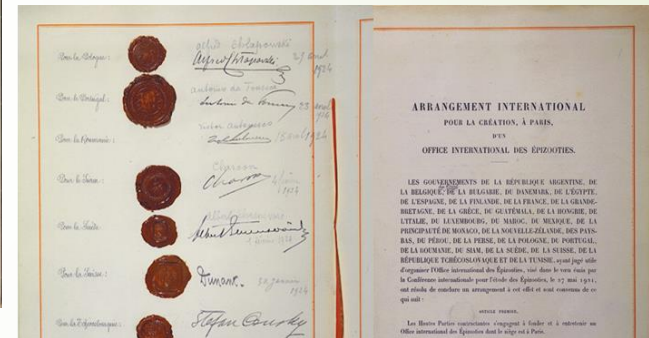 Pour la Pologne :
Alfred Chlapowski
27 avril
1924
Pour le Portugal :
Antonio da Fonseca
Pour la Roumanie :
Victor Antonescu
1924
Pour le Siam :
Charoon
Charoon
Pour la Suède :
Albert Ehrensvärd
1924
Pour la Suisse :
Dunant.
30 janvier
1924
Pour la Tchécoslovaquie :
Stefan Osusky
ARRANGEMENT INTERNATIONAL
POUR LA CRÉATION, À PARIS,
D'UN
OFFICE INTERNATIONAL DES ÉPIZOOTIES.
LES GOUVERNEMENTS DE LA RÉPUBLIQUE ARGENTINE, DE
LA BELGIQUE, DE LA BULGARIE, DU DANEMARK, DE L'ÉGYPTE,
DE L'ESPAGNE, DE LA FINLANDE, DE LA FRANCE, DE LA GRANDE-
BRETAGNE, DE LA GRÈCE, DU GUATÉMALA, DE LA HONGRIE, DE
L'ITALIE, DU LUXEMBOURG, DU MAROC, DU MEXIQUE, DE LA
PRINCIPAUTÉ DE MONACO, DE LA NOUVELLE-ZÉLANDE, DES PAYS-
BAS, DU PÉROU, DE LA PERSE, DE LA POLOGNE, DU PORTUGAL,
DE LA ROUMANIE, DU SIAM, DE LA SUÈDE, DE LA SUISSE, DE LA
RÉPUBLIQUE TCHÉCOSLOVAQUE ET DE LA TUNISIE, ayant jugé utile
d'organiser l'Office international des Épizooties, visé dans le vœu émis par
la Conférence internationale pour l'étude des Épizooties, le 27 mai 1921,
ont résolu de conclure un arrangement à cet effet et sont convenus de ce
qui suit :
ARTICLE PREMIER.
Les Hautes Parties contractantes s'engagent à fonder et à entretenir un
Office international des Épizooties dont le siège est à Paris.